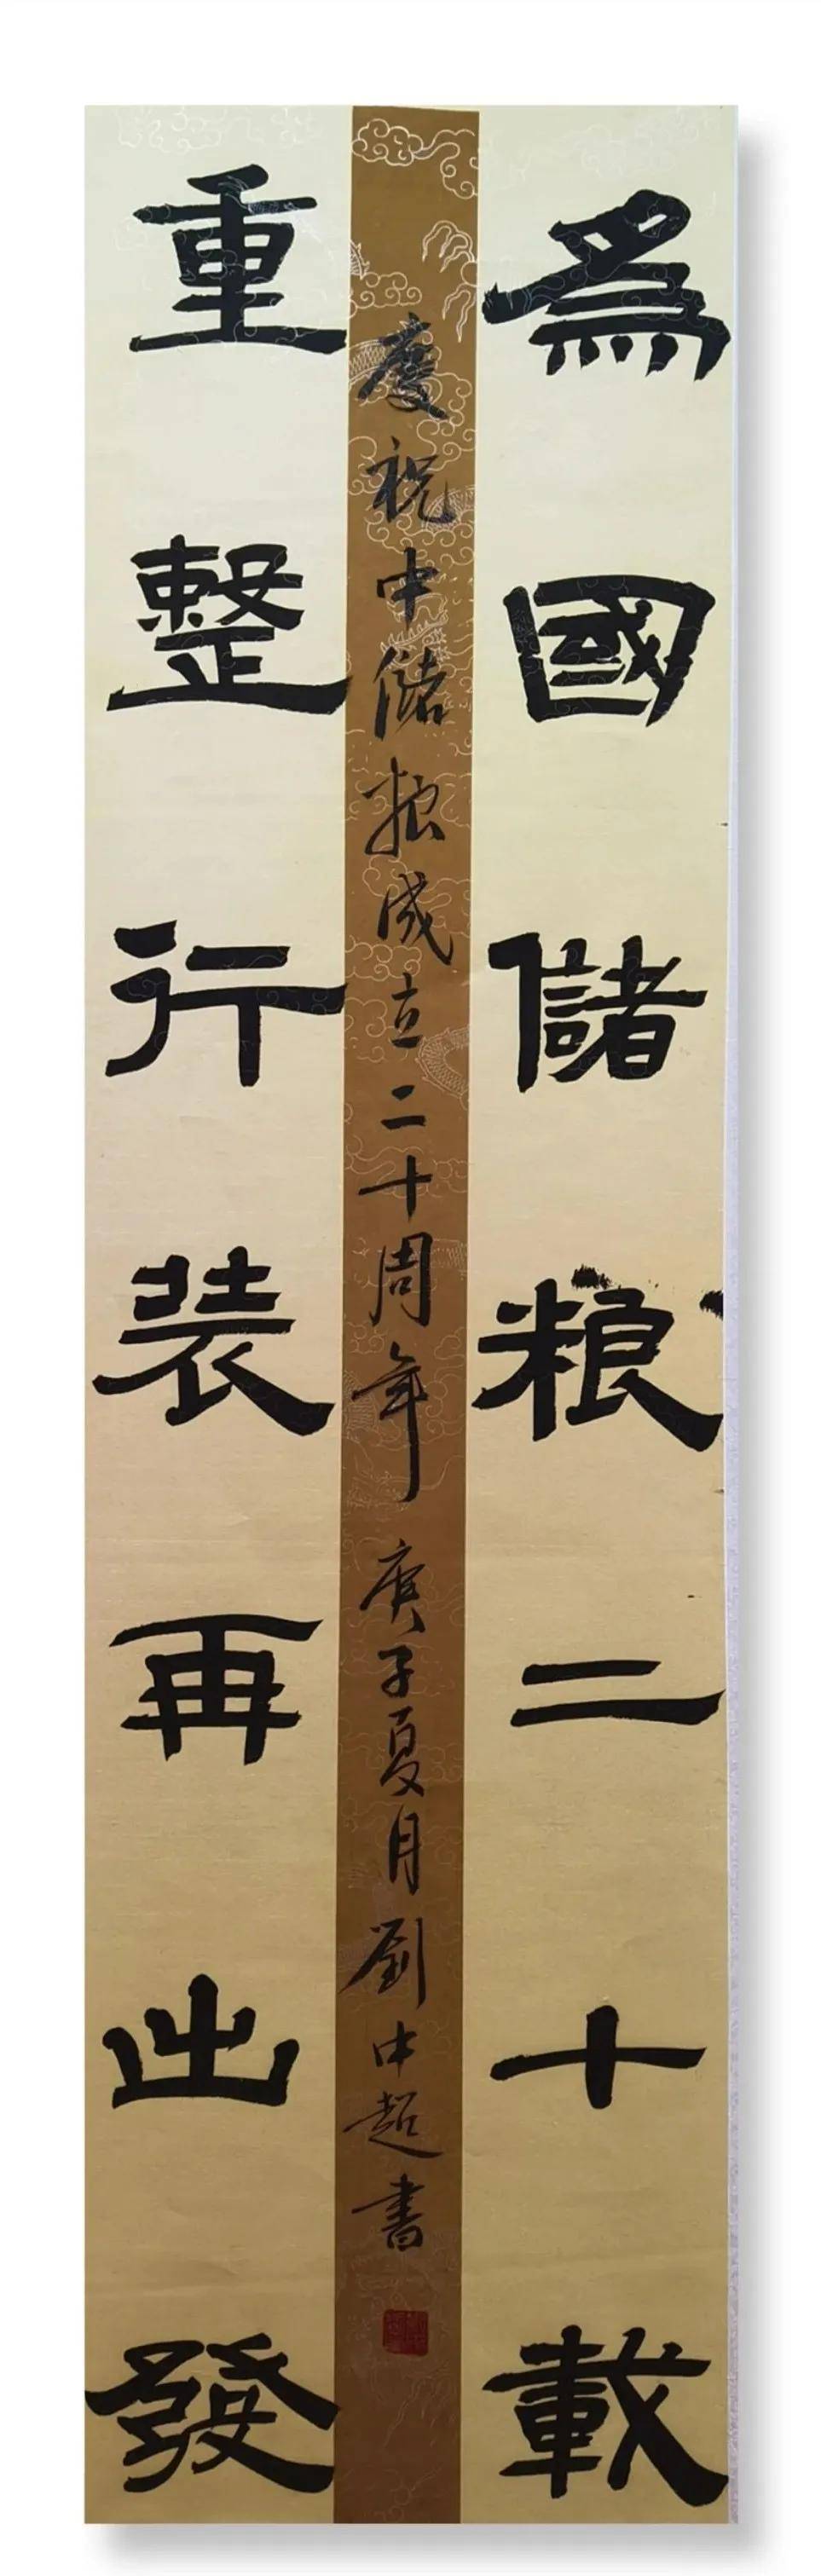 為國儲粮二十載
重整行装再出發
慶祝中储粮成立二十周年 庚子夏月劉中超書